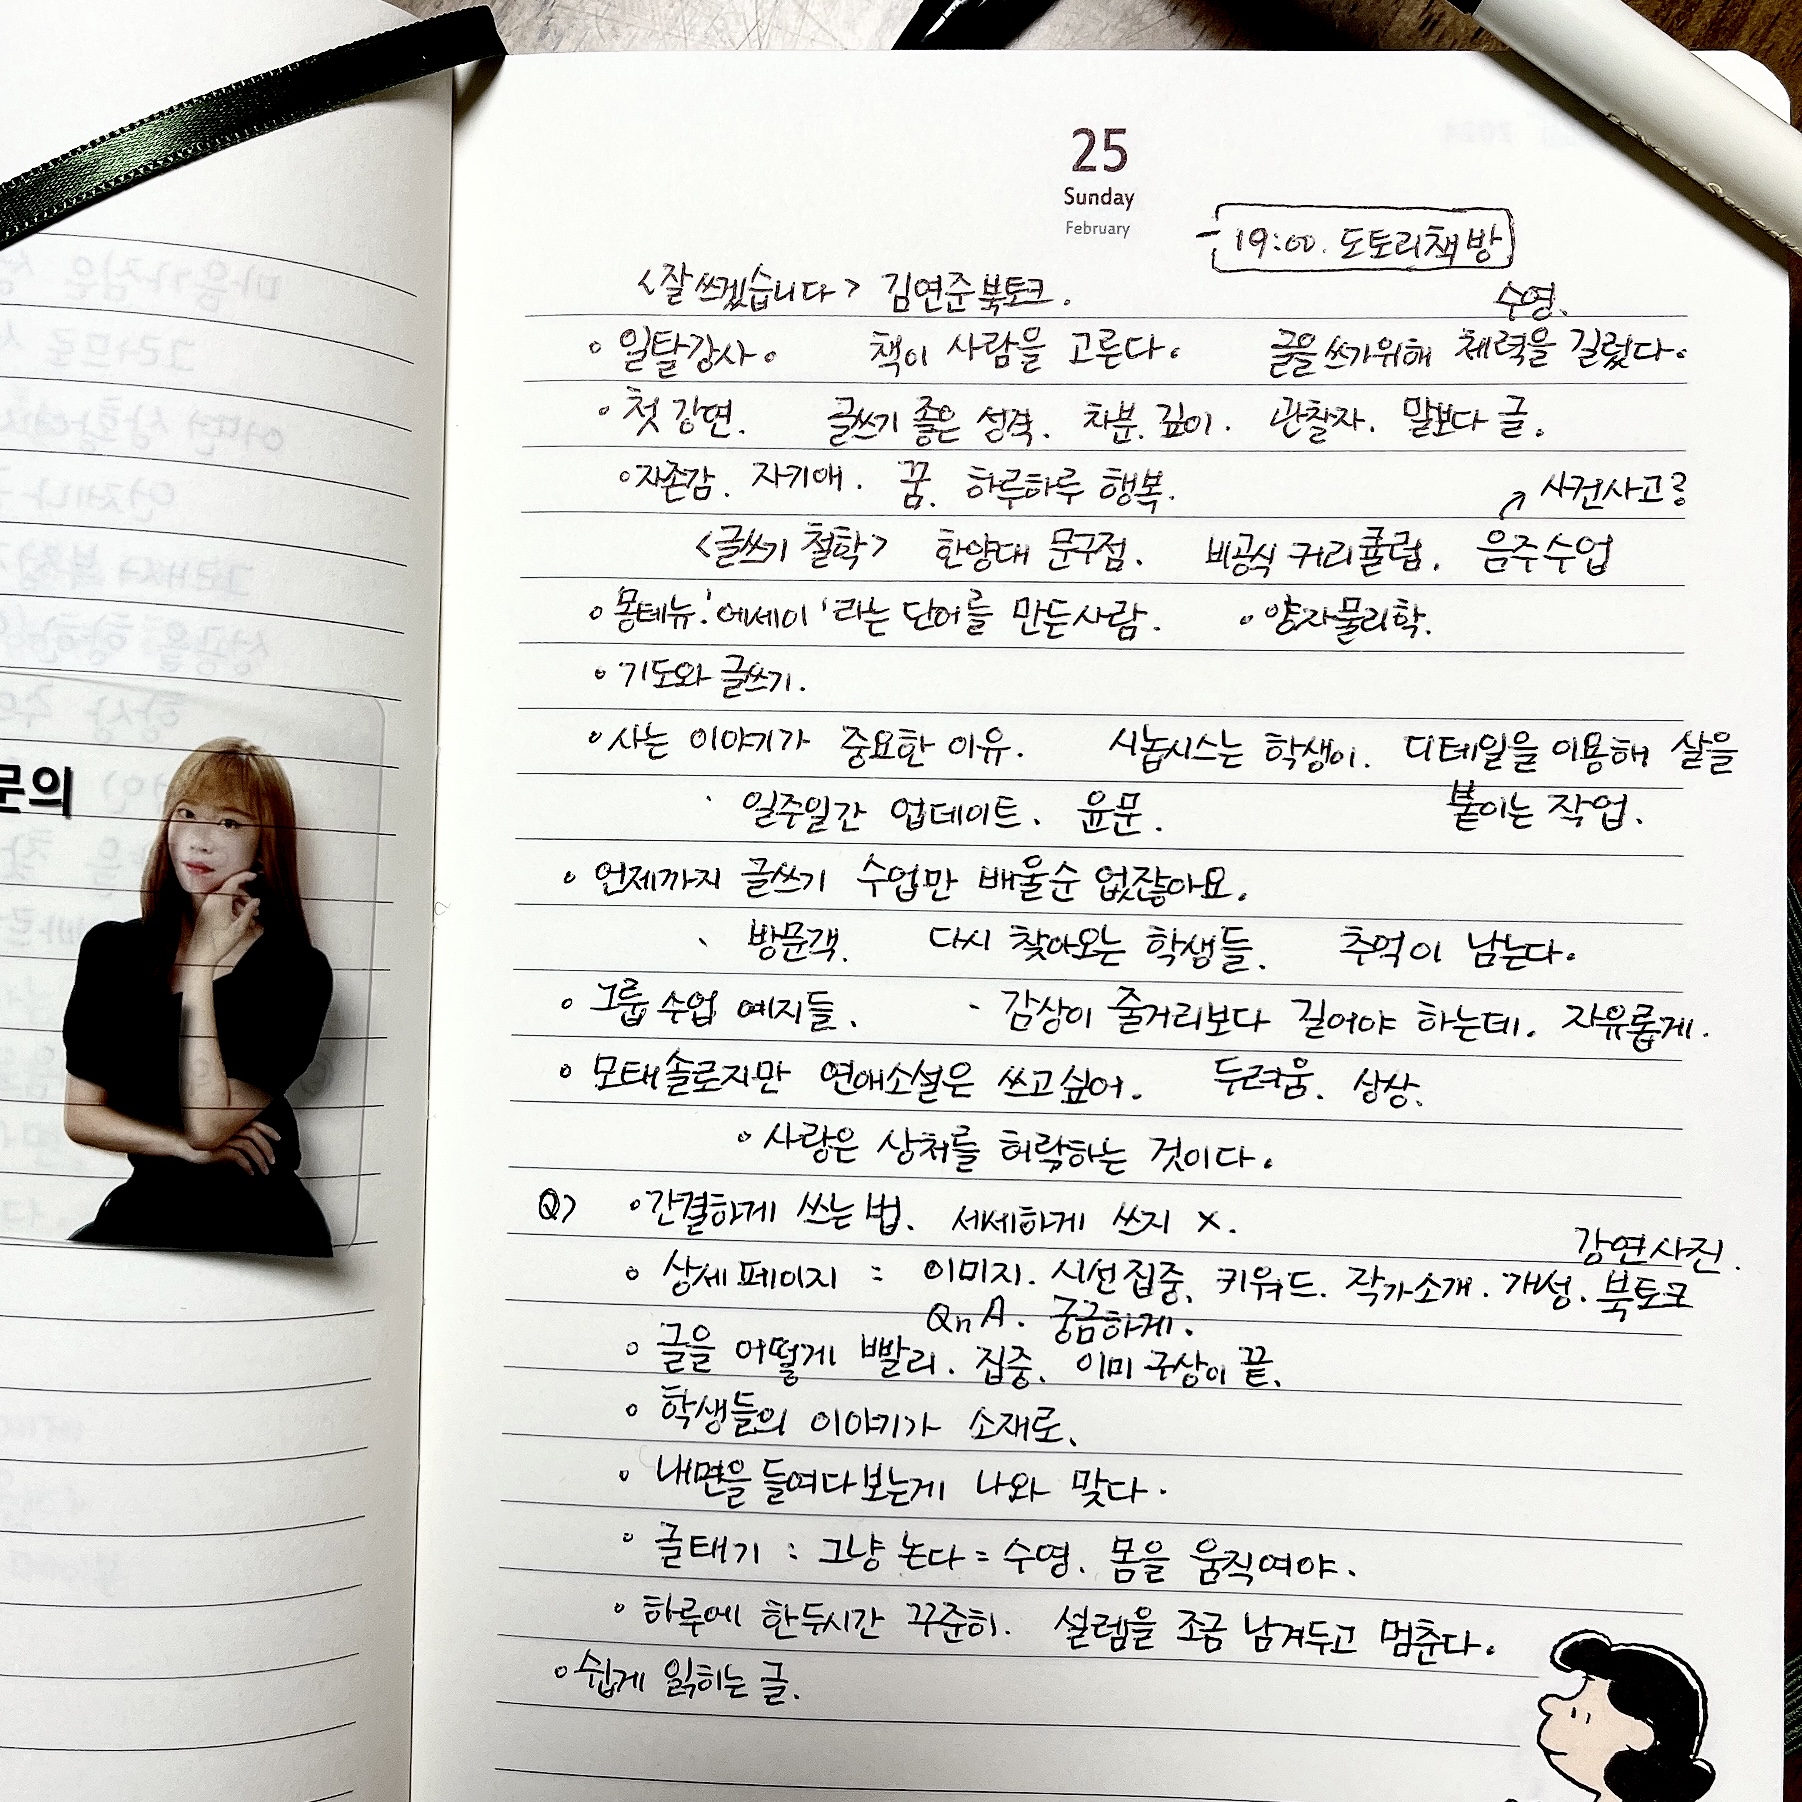 문의
25
Sunday
February
19:00. 도토리책방
<잘 쓰겠습니다> 김연준 북토크.
수영.
일탈강사. 책이 사람을 고른다. 글을 쓰기위해 체력을 길렀다.
첫 강연. 글쓰기 좋은 성격. 차분. 깊이. 관찰자. 말보다 글.
자존감. 자기애. 꿈. 하루하루 행복.
사건사고?
<글쓰기 철학> 한양대 문구점. 비공식 커리큘럼. 음주수업
몽테뉴. '에세이'라는 단어를 만든사람. 양자물리학.
기도와 글쓰기.
사는 이야기가 중요한 이유. 시놉시스는 학생이. 디테일을 이용해 살을
일주일간 업데이트. 윤문. 붙이는 작업.
언제까지 글쓰기 수업만 배울순 없잖아요.
방문객. 다시 찾아오는 학생들. 추억이 남는다.
그룹 수업 예지들. 감상이 줄거리보다 길어야 하는데. 자유롭게.
모태솔로지만 연애소설은 쓰고싶어. 두려움. 상상.
사랑은 상처를 허락하는 것이다.
Q> 간결하게 쓰는 법. 세세하게 쓰지 x.
강연사진.
상세페이지 : 이미지. 시선집중. 키워드. 작가소개. 개성. 북토크
QnA. 궁금하게.
글을 어떻게 빨리. 집중. 이미 구상이 끝.
학생들의 이야기가 소재로.
내면을 들여다보는게 나와 맞다.
글태기 : 그냥 논다 = 수영. 몸을 움직여야.
하루에 한두시간 꾸준히. 설렘을 조금 남겨두고 멈춘다.
쉽게 읽히는 글.